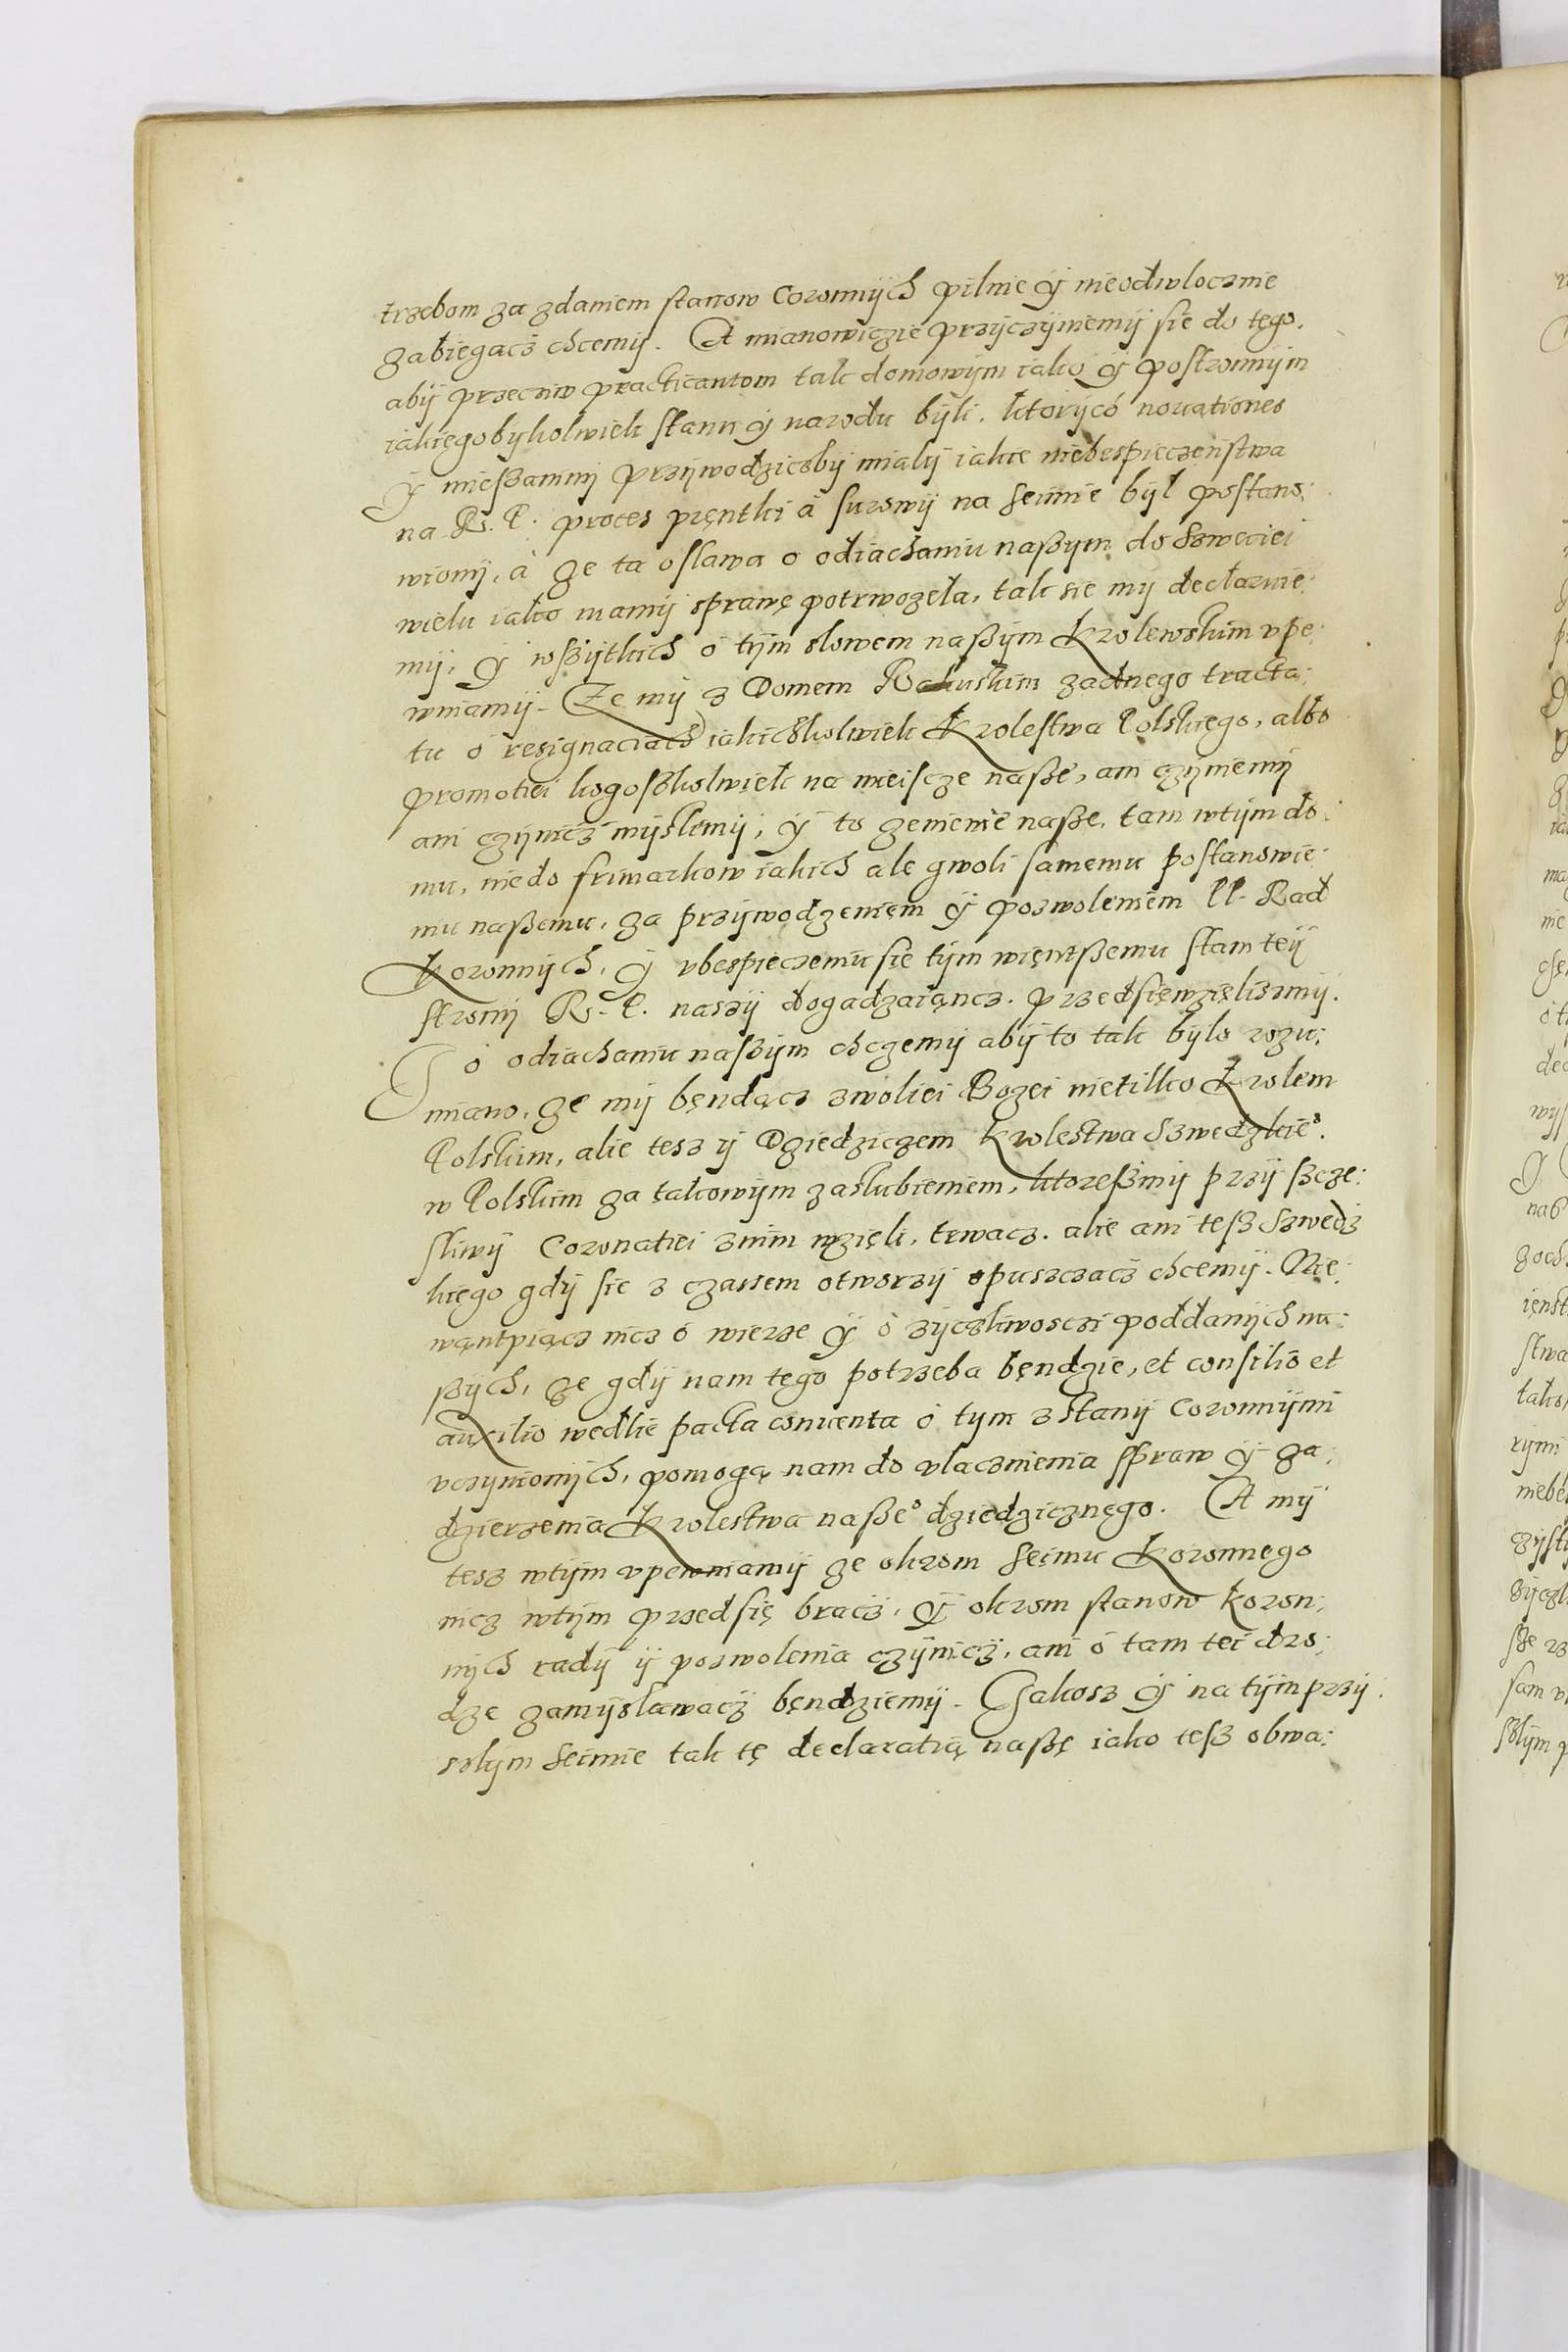 trzebom za zdaniem stanow Coronnÿch pilnie ÿ nieodwlocznie
zabiegacz chcemÿ. A mianowiczie przÿczÿniemÿ sie do tęgo.
abÿ przeciw practicantom tak domowÿm iako ÿ postronnÿm
iakięgobÿkolwiek stanu ÿ narodu bÿli. ktorÿch nouationes
ÿ mieszaninÿ przÿwodzięzbÿ mialÿ iakie niebespieczenstwa
na R. P. proces pręntki à surowÿ na seimie bÿl postano:
wionÿ, à ze ta oslawa o odiachaniu naszym do Szweciei
wielu iako mamÿ sprawę potrwozeła, tak sie mÿ declaruie:
mÿ, ÿ wszÿtkich ó tÿm slowem naszÿm Krolewskim vpe:
wniamÿ. Ze mÿ z Domem Rakuskim zadnego tracta:
tu ó resignaciach iakichkolwiek Krolestwa Polskięgo, albo
promotiei kogoszkolwiek na mieiscze nasze, ani czÿniemÿ
ani czÿnicz mÿslemÿ, ÿ to zenienie nasze, tam wtÿm do:
mu, niedo frimarkow iakich ale gwoli samemu postanowie:
niu naszemu, za przÿwodzeniem ÿ pozwoleniem PP. Rad
Koronnÿch, ÿ vbespieczeniu sie tÿm więntszemu stam teÿ
stronÿ R. P. naszÿ dogadzaiąncz. przedsięwzięlismÿ.
I ó odiachaniu naszÿm chczemÿ abÿ to tak bÿlo rozu:
miano, ze mÿ bęndącz zwoliei Bozei nietilko Krolem
Polskim, alie tesz ÿ Dziedziczem Krolestwa Szwedzkie⁰.
w Polskim za takowÿm zaslubieniem, ktoreszmÿ przÿ szcze:
sliwÿ Coronatiei znim wzięli, trwacz. alie ani tesz Szwedz
kięgo gdÿ sie z czassem otworzÿ opuszczacz chcemÿ. Nie:
wąntpiącz nicz ó wierze ÿ ó zÿczliwosczi poddanÿch na:
szÿch, ze gdÿ nam tego potrzeba bęndzie, et consilio et
auxilio wedlie pacta conuenta ó tym z stanÿ Coronnÿmi
vczÿnionÿch, pomogą nam do vlacznienia spraw ÿ za:
dzierzenia Krolestwa nasze⁰ dziedzicznęgo. A mÿ
tesz wtÿm vpewniamÿ ze okrom Seimu Koronnego
nicz wtÿm przedsię bracz, ÿ okrom stanow Koron:
nÿch radÿ ÿ pozwolenia czÿnicz, ani ó tam tei dro:
dze zamÿslawacz bęndziemÿ. Iakosz ÿ na tÿm przÿ:
szlÿm seimie tak tę declaratią naszę iako tesz obwa: